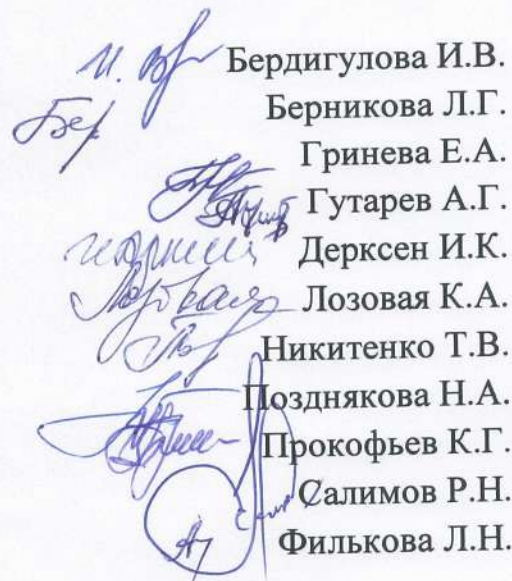 Бердигулова И.В.
Бер Берникова Л.Г.
Гринева Е.А.
Гутарев А.Г.
Дерксен И.К.
Лозовая Лозовая К.А.
Никитенко Т.В.
Позднякова Н.А.
Прокофьев К.Г.
Салимов Р.Н.
Филькова Л.Н.